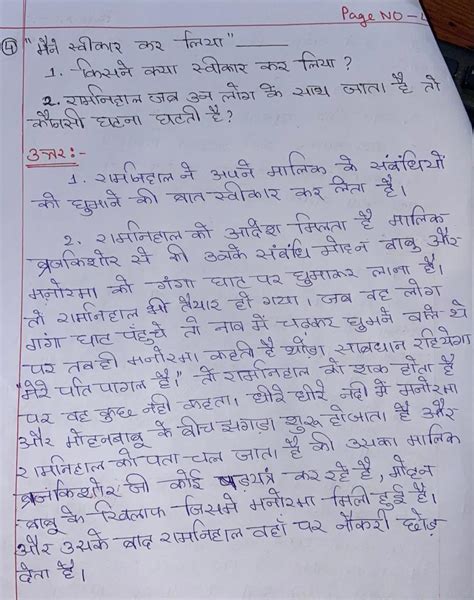 Page NO -
④ "मैने स्वीकार कर लिया" ———
1. किसने क्या स्वीकार कर लिया ?
2. रामनिहाल जब उन लोग के साथ जाता है तो
कौनसी घटना घटती है?
उत्तर:-
1. रामनिहाल ने अपने मालिक के संबंधियो
को घुमाने की बात स्वीकार कर लेता है।
2. रामनिहाल को आदेश मिलता है मालिक
ब्रजकिशोर से की उनके संबंधि मोहन बाबु और
मनोरमा को गंगा घाट पर घुमाकर लाना है।
तो रामनिहाल भी तैयार हो गया। जब वह लोग
गंगा घाट पहुचे तो नाव में चढ़कर घुमने वाले थे
पर तबही मनोरमा कहती है थोडा सावधान रहियेगा
"मेरे पति पागल है।" तो रामनिहाल को शक होता है
पर वह कुछ नही कहता। धीरे धीरे नदी में मनोरमा
और मोहनबाबु के बीच झगडा शुरु हो जाता है और
रामनिहाल को पता चल जाता है की उसका मालिक
ब्रजकिशोर जी कोई षडयंत्र कर रहे है, मोहन
बाबु के खिलाफ जिसमे मनोरमा मिली हुई है।
और उसके बाद रामनिहाल वहाँ पर नौकरी छोड़
देता है।